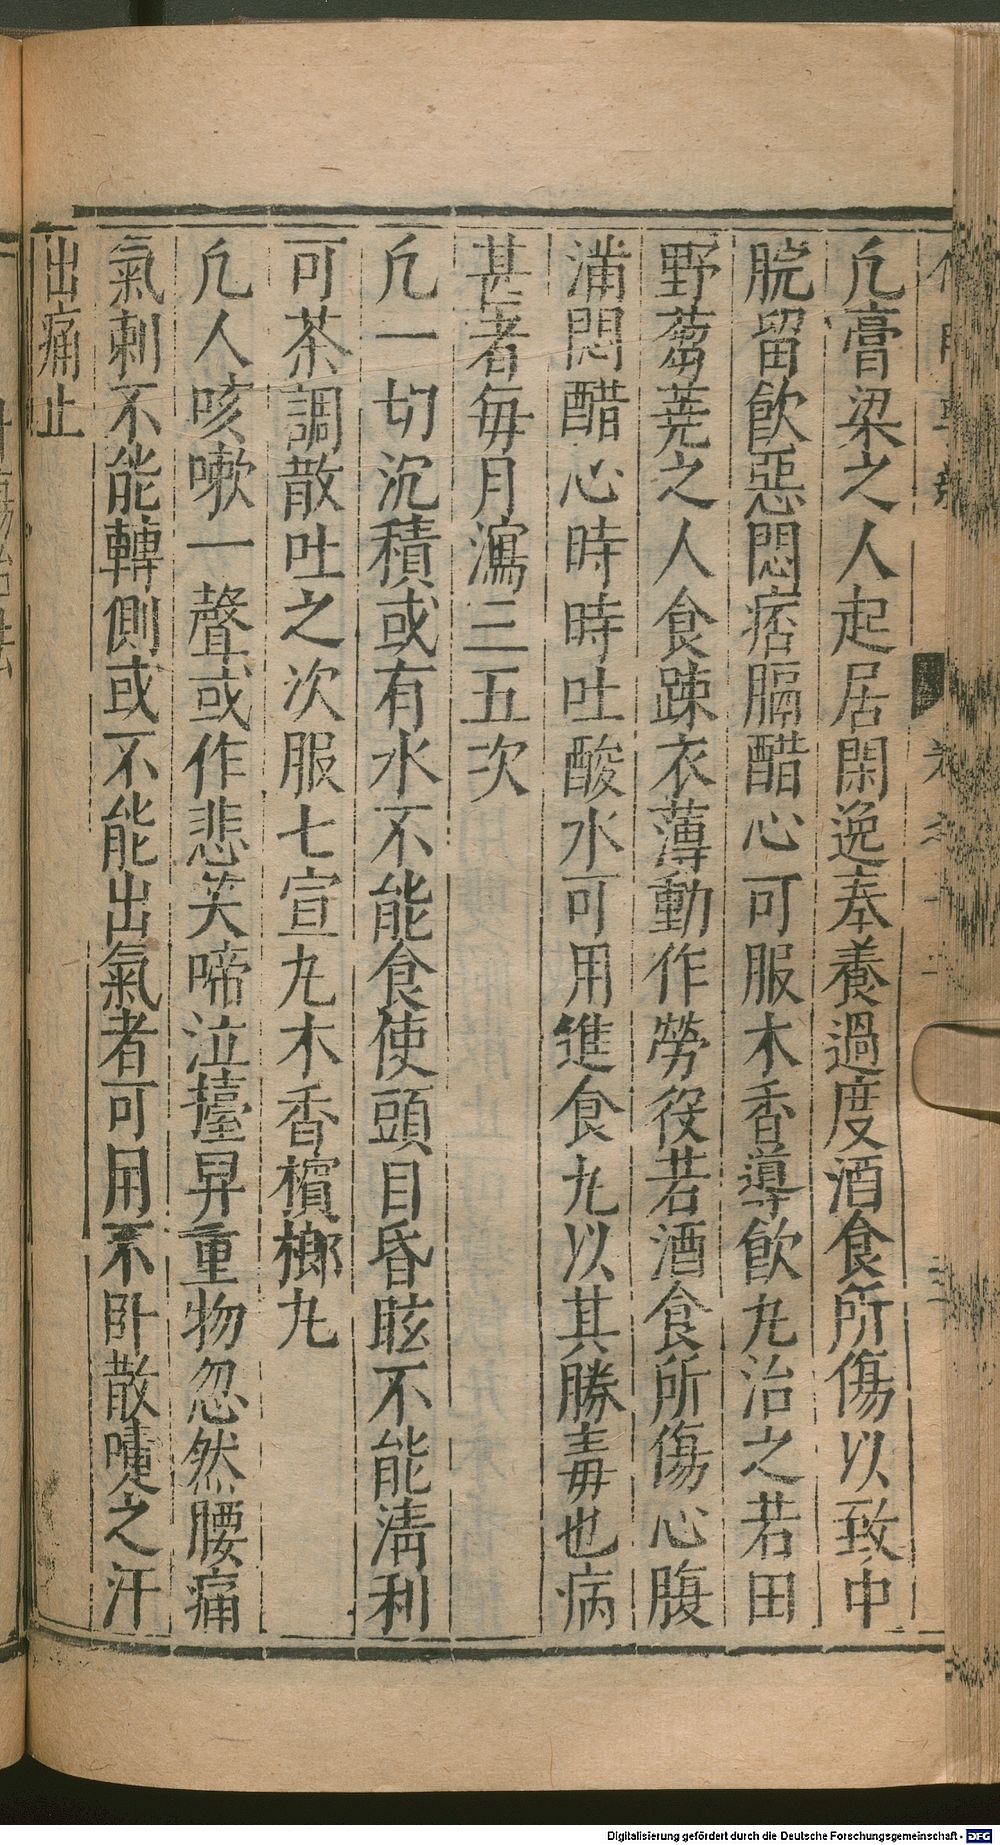 凡膏梁之人起居閑逸奉養過度酒食所傷以致中
脘留飲惡悶痞膈醋心可服木香導飲丸治之若田
野蒭蕘之人食踈衣薄動作勞役若酒食所傷心腹
滿悶醋心時時吐酸水可用進食丸以其勝毒也病
甚者每月瀉三五次
凡一切沉積或有水不能食使頭目昏眩不能淸利
可茶調散吐之次服七宣丸木香檳榔丸
凡人咳嗽一聲或作悲笑啼泣擡舁重物忽然腰痛
氣刺不能轉側或不能出氣者可用不卧散嚏之汗
出痛止
Digitalisierung gefördert durch die Deutsche Forschungsgemeinschaft - DFG